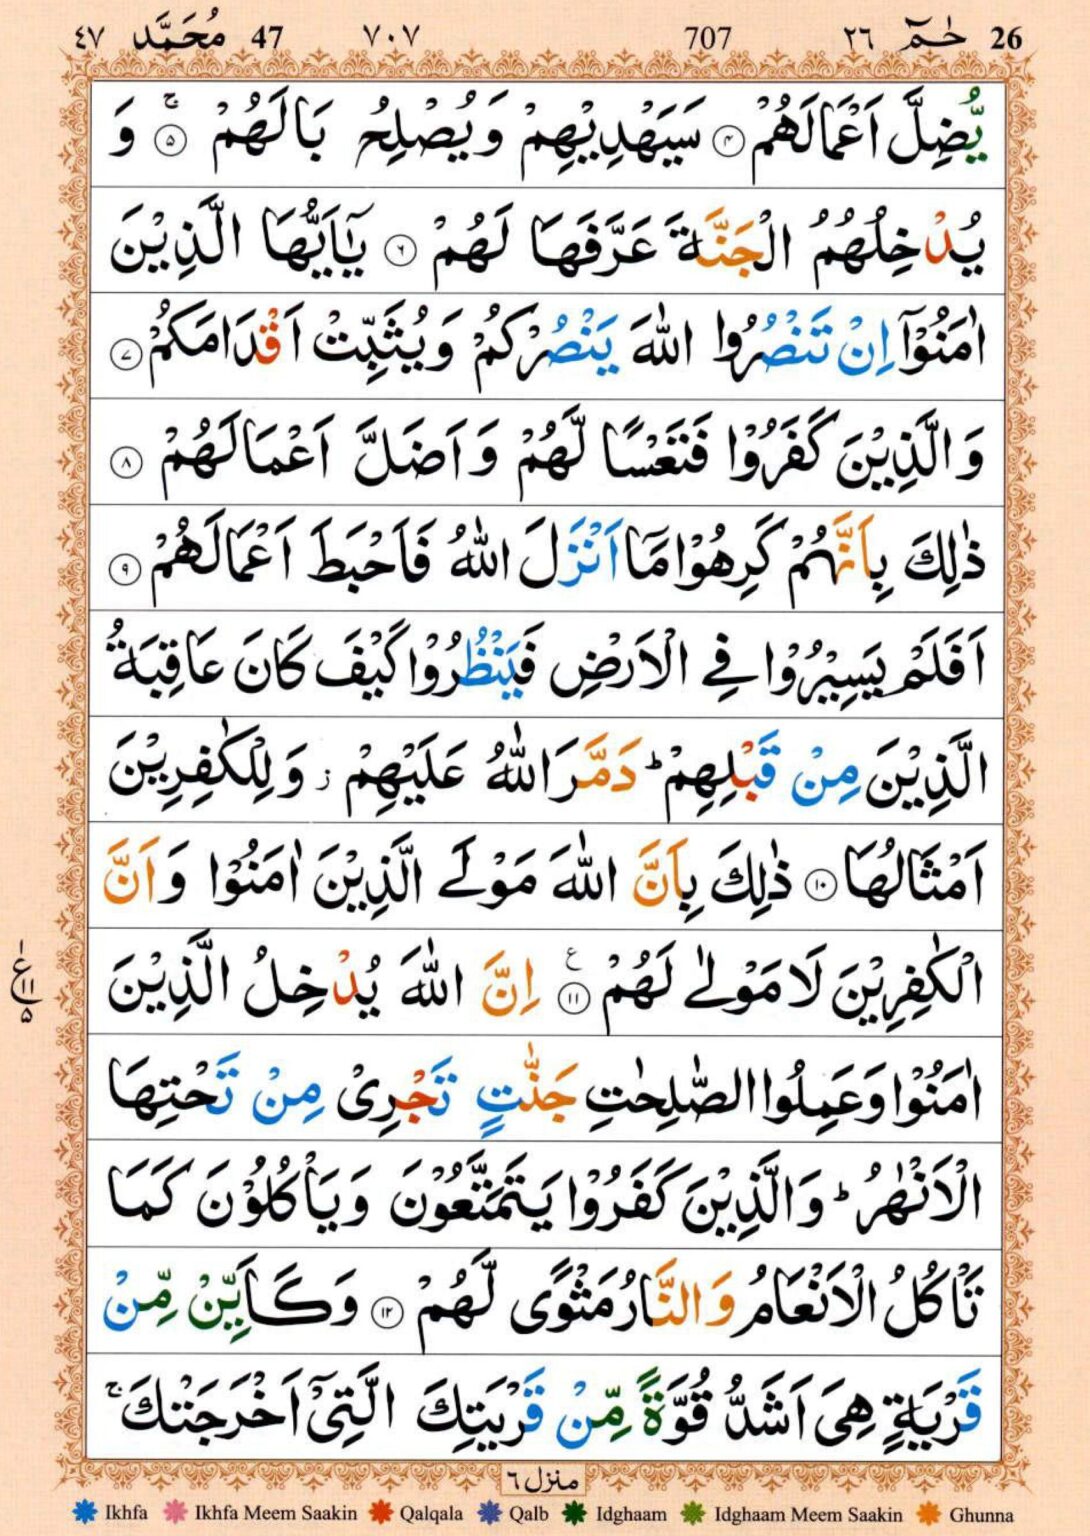 26 حٰمٓ ٢٦ 707 ٧٠٧ 47 مُحَمَّد ٤٧
يُّضِلَّ اَعْمَالَهُمْ ۝۴ سَيَهْدِيْهِمْ وَيُصْلِحُ بَالَهُمْ ۚ ۝۵ وَ
يُدْخِلُهُمُ الْجَنَّةَ عَرَّفَهَا لَهُمْ ۝۶ يٰۤاَيُّهَا الَّذِيْنَ
اٰمَنُوْۤا اِنْ تَنْصُرُوا اللّٰهَ يَنْصُرْكُمْ وَيُثَبِّتْ اَقْدَامَكُمْ ۝۷
وَالَّذِيْنَ كَفَرُوْا فَتَعْسًا لَّهُمْ وَاَضَلَّ اَعْمَالَهُمْ ۝۸
ذٰلِكَ بِاَنَّهُمْ كَرِهُوْا مَاۤ اَنْزَلَ اللّٰهُ فَاَحْبَطَ اَعْمَالَهُمْ ۝۹
اَفَلَمْ يَسِيْرُوْا فِي الْاَرْضِ فَيَنْظُرُوْا كَيْفَ كَانَ عَاقِبَةُ
الَّذِيْنَ مِنْ قَبْلِهِمْ ؕ دَمَّرَ اللّٰهُ عَلَيْهِمْ ز وَلِلْكٰفِرِيْنَ
اَمْثَالُهَا ۝۱۰ ذٰلِكَ بِاَنَّ اللّٰهَ مَوْلَى الَّذِيْنَ اٰمَنُوْا وَاَنَّ
الْكٰفِرِيْنَ لَا مَوْلٰى لَهُمْ ۝۱۱ ع اِنَّ اللّٰهَ يُدْخِلُ الَّذِيْنَ
ع ۱۱ ۵
اٰمَنُوْا وَعَمِلُوا الصّٰلِحٰتِ جَنّٰتٍ تَجْرِيْ مِنْ تَحْتِهَا
الْاَنْهٰرُ ؕ وَالَّذِيْنَ كَفَرُوْا يَتَمَتَّعُوْنَ وَيَاْكُلُوْنَ كَمَا
تَاْكُلُ الْاَنْعَامُ وَالنَّارُ مَثْوًى لَّهُمْ ۝۱۲ وَكَاَيِّنْ مِّنْ
قَرْيَةٍ هِيَ اَشَدُّ قُوَّةً مِّنْ قَرْيَتِكَ الَّتِيْۤ اَخْرَجَتْكَ ۚ
منزل ٦
Ikhfa Ikhfa Meem Saakin Qalqala Qalb Idghaam Idghaam Meem Saakin Ghunna